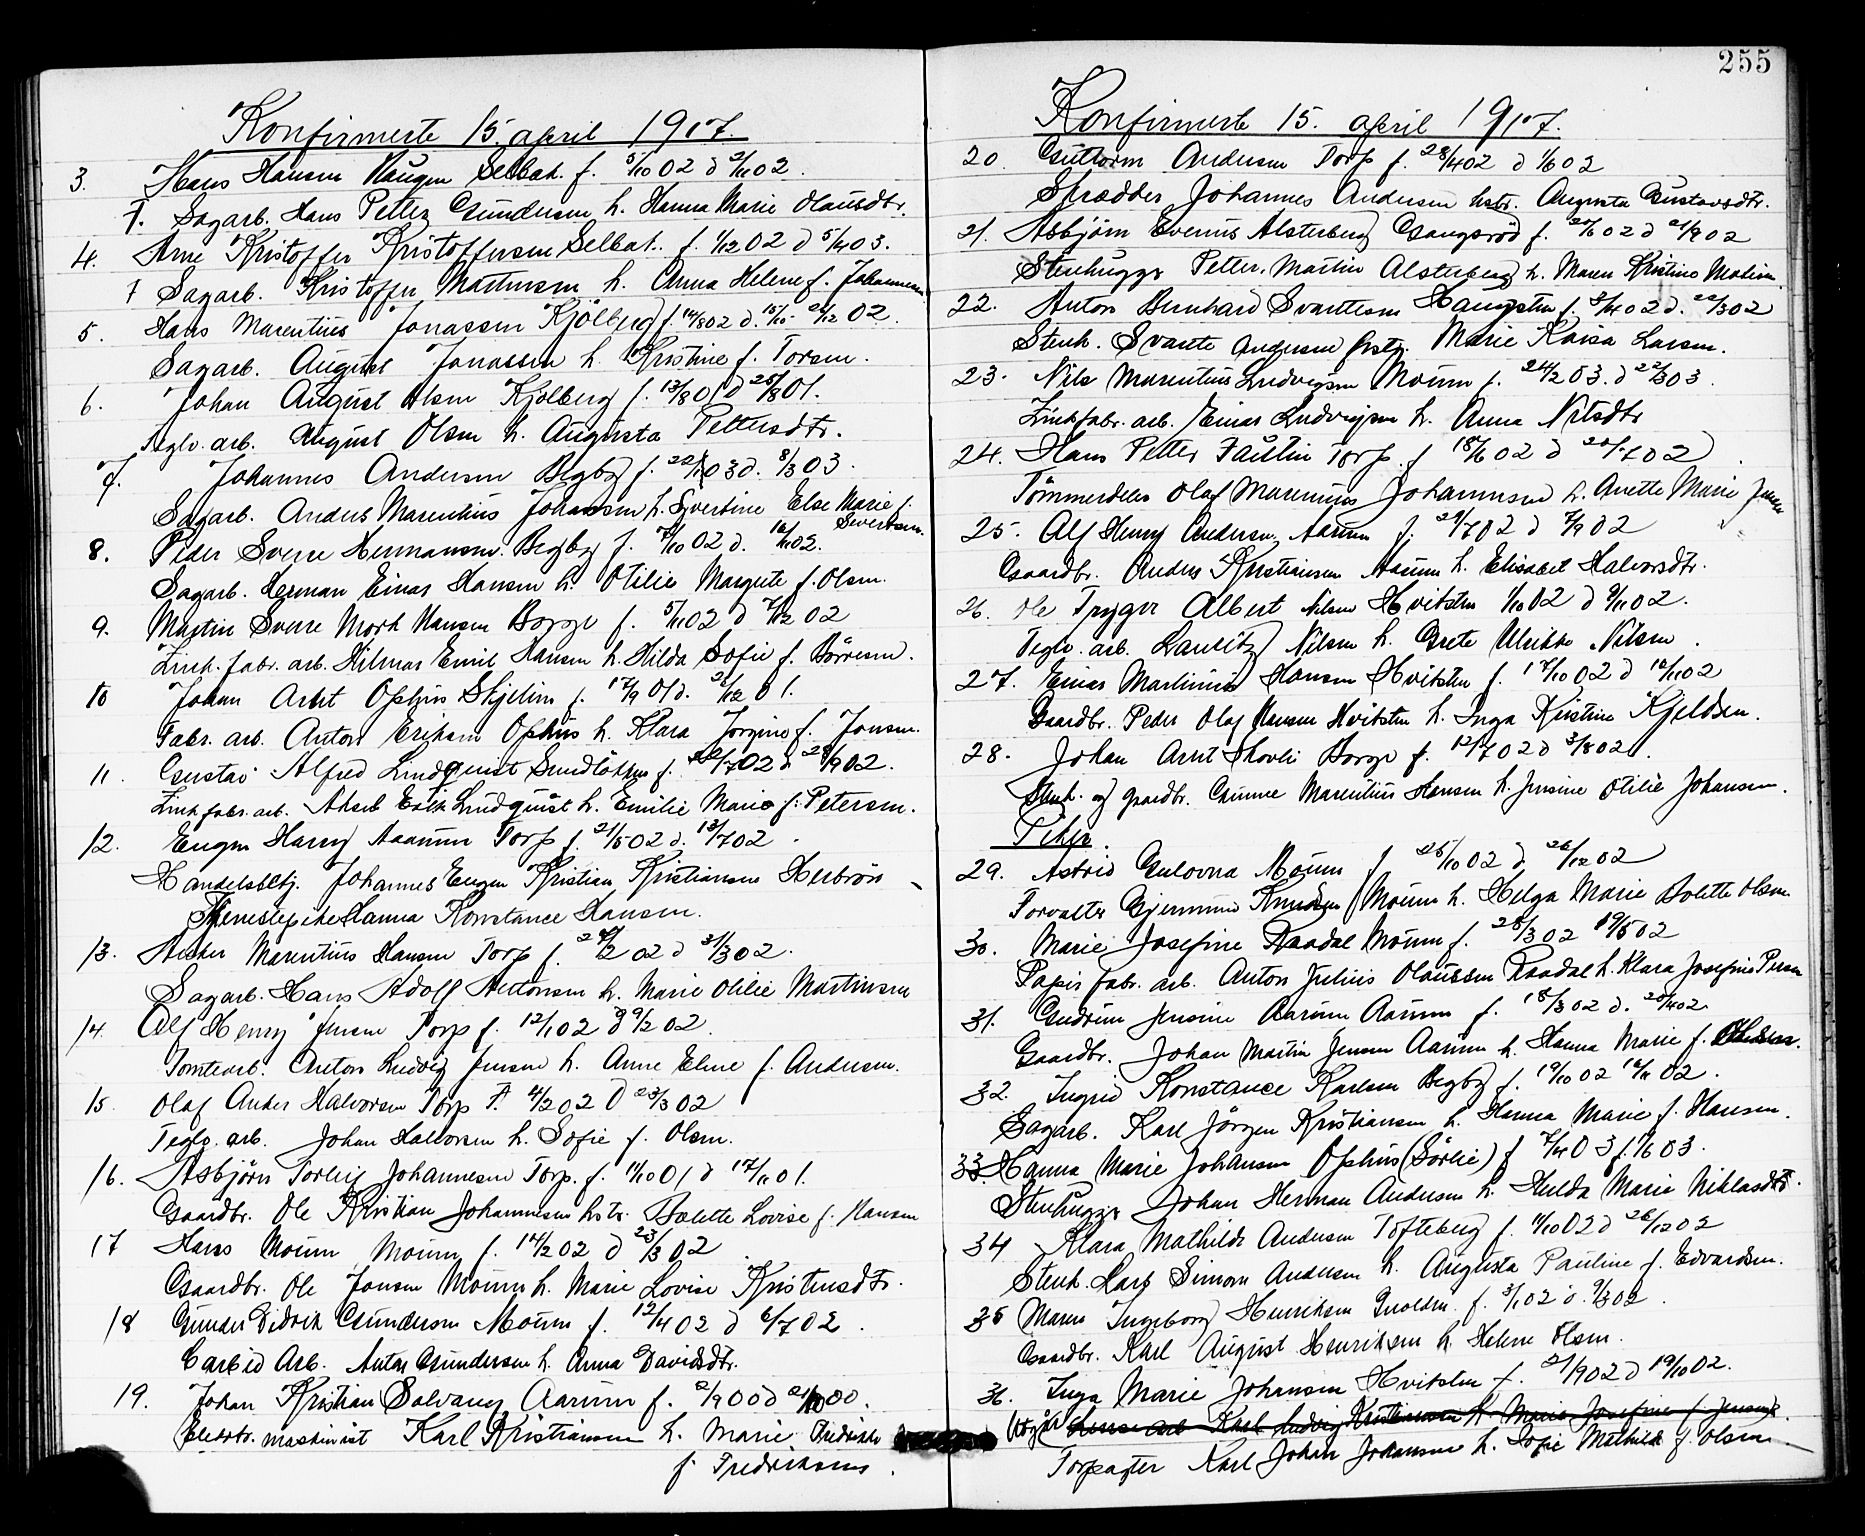 Konfirmerte 15. april 1917.
3. Hans Hansen Haugen Selbak. f. 5/10 02 d 2/11 02.
F. Sagarb. Hans Petter Gundersen h. Hanna Marie Olausdtr.
4. Arne Kristoffer Kristoffersen Selbak. f. 1/12 02 d 5/4 03.
F Sagarb. Kristoffer Martinsen h. Anna Helene f. Johannesen
5. Hans Marentius Jonassen Kjölberg f. 14/8 02 d. 26/12 02.
Sagarb. August Jonassen h. Kristine f. Torsen.
6. Johan August Olsen Kjölberg f. 13/8 01 d 25/8 01.
Teglv. arb. August Olsen h. Augusta Pettersdtr.
7. Johannes Andersen Begby f. 22/1 03 d. 8/3 03.
Sagarb. Anders Marentius Johansen h. Syvertine Else Marie f.
Sivertsen.
8. Peder Sverre Hermansen Begby f. 7/10 02 d. 16/11 02.
Sagarb. Herman Einar Hansen h. Otilie Margrete f. Olsen.
9. Martin Sverre Mork Hansen Borge f. 5/11 02 d 7/12 02
Zink. fabr. arb. Hilmar Emil Hansen h. Hilda Sofie f. Börresen.
10 Johan Arnt Ophus Skjelin f. 17/9 01 d. 26/12 01.
Fabr. arb. Anton Eriksen Ophus h. Klara Jörgine f. Jonsen.
11. Gustav Alfred Lindquist Sundlökken f. 22/7 02 d 28/9 02.
Zink fabr. arb. Aksel Erik Lindquist h. Emilie Marie f. Petersen.
12. Eugen Harry Aaarum Torp f. 21/5 02 d. 13/7 02.
Handelsbetj. Johannes Eugen Kristian Kristiansen Herbrön
Tjenestepike Hanna Konstance Hansen.
13. Marentius Hansen Torp f. 24/2 02 d 31/3 02.
Sagarb. Hans Adolf Antonsen h. Marie Otilie Martinsen
14. Alf Henry Jensen Torp f. 12/1 02 d 9/2 02.
Tomtearb. Anton Ludvig Jensen h. Anne Eline f. Andersen.
15. Olaf Anders Halvorsen Torp F. 4/2 02 d 23/3 02
Teglv. arb. Johan Halvorsen h. Sofie f. Olsen.
16. Asbjörn Torleif Johannesen Torp. f. 11/10 01 d 17/11 01.
Gaardbr. Ole Kristian Johannesen hstr. Bolette Lovise f. Hansen
17 Hans Moum Moum f. 14/2 02 d 23/3 02.
Gaardbr. Ole Jonsen Moum h. Marie Lovise Kristensdtr.
18 Gunder Didrik Gundersen Moum f. 12/4 02 d 6/7 02.
Carbid Arb. Anton Gundersen h. Anna Davidsdtr.
19. Johan Kristian Solvang Aarum f. 2/9 00 d 21/10 00.
Elektr. maskinist Karl Kristiansen h. Marie Fredrikke
f. Fredriksens.
255
Konfirmerte 15. april 1917.
20. Guttorm Andersen Torp f. 28/4 02 d 1/6 02
Skrædder Johannes Andersen hstr. Augusta Gustavsdtr.
21. Asbjörn Evenus Alsterberg Gangsröd f. 20/6 02 d 21/9 02
Stenhugger Petter Martin Alsterberg h. Maren Kristine
22. Anton Bernhard Svartesen Haugsten f. 8/4 02 d. 22/3 02
Stenh. Svante Andersen Marie Kaisa Larsen.
23. Nils Marentius Ludvigsen Moum f. 24/2 03. d 22/3 03.
Zinkfabr. arb. Einar Ludvigsen h. Anna Nilsdtr
24. Hans Petter Faustin Torp f 18/6 02 d 20/7 02
Tömmerdeler Olaf Marenius Johannesen h. Anette Marie Jensen
25. Alf Henry Andersen Aarum f. 24/7 02 d 7/9 02
Gaardbr. Anders Kristiansen Aarum h. Elisabet Halvorsdtr.
26. Ole Trygve Albert Nilsen Hvitsten 1/10 02 d 9/11 02.
Teglv. arb. Lauritz Nilsen h. Grete Ulrikke Nilsen.
27. Einar Martinius Hansen Hvitsten f. 17/10 02 d 16/11 02
Gaardbr. Peder Olaf Hansen Hvitsten h. Inga Kristine Kjeldsen.
28. Johan Arnt Skovli Borge f. 12/7 02 d 3/8 02.
Stenh. og gaardbr. Gunne Marentius Hansen h. Jensine Otilie Johansen.
Piker.
29. Astrid Gulovna Moum f 25/10 02 d 26/12 02
Forvalter Gjermund Knudsen Moum h. Helga Marie Bolette Olsen
30. Marie Josefine Raadal Moum f. 28/3 02 19/5 02
Papir fabr. arb. Anton Julius Olaussen Raadal h. Klara Josefine
31. Gudrun Jensine Aarum Aarum f. 18/3 02 d. 20/4 02.
Gaardbr. Johan Martin Jensen Aarum h. Hanna Marie f.
32. Ingrid Konstance Karlsen Begby f. 19/10 02 16/11 02.
Sagarb. Karl Jörgen Kristiansen h. Hanna Marie f. Hansen.
33. Hanna Marie Johansen Ophus (Sörlie) f 7/4 03 1/6 03.
Stenhugger Johan Herman Andersen h. Hulda Marie Niklasdtr.
34 Klara Mathilde Andersen Tofteberg f. 11/10 02 d 26/12 02
Stenh. Lars Simon Andersen h. Augusta Pauline f. Edvardsen.
35 Maren Ingeborg Henriksen f. 3/1 02 d. 9/3 02.
Gaardbr. Karl August Henriksen h. Helene Olsen.
36. Inga Marie Johansen Hvitsten f. 21/9 02 d 19/10 02.
(Utgår) arb Karl Ludvig Kristiansen h. Marie Josefine f. Jensen.
Torpagter Karl Johan Johansen h. Sofie Mathilde f. Olsen.